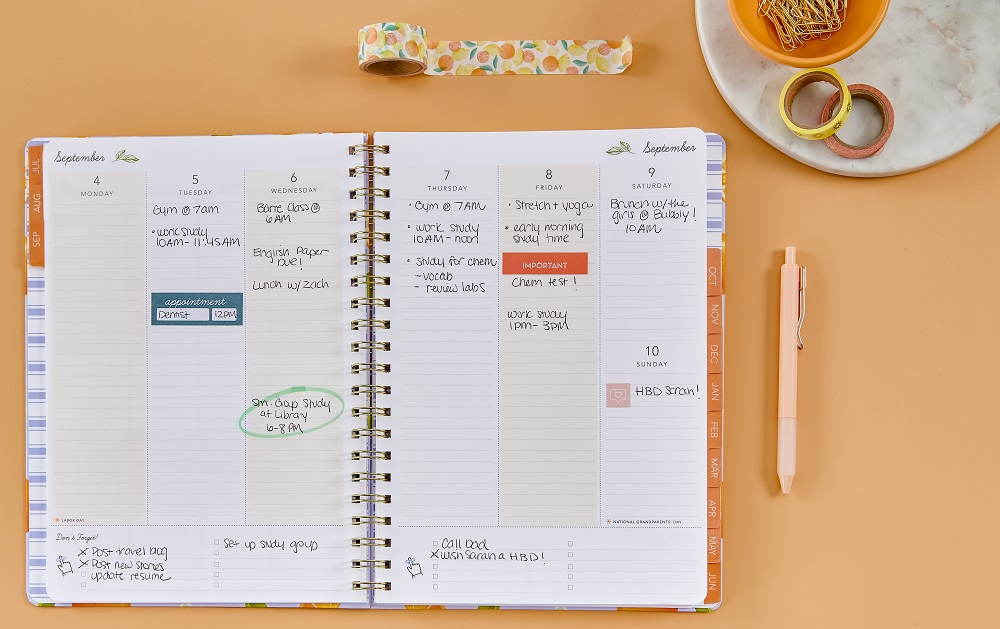 September
4
MONDAY
LABOR DAY
5
TUESDAY
Gym @ 7am
• work study
10AM - 11:45AM
appointment
Dentist 12PM
6
WEDNESDAY
Barre Class @
6AM
English Paper
Due!
Lunch w/ Zach
Sm. Group Study
at Library
6-8 PM
Don't Forget!
X Post travel blog
X Post new stories
update resume
Set up study group
JUL
AUG
SEP
September
7
THURSDAY
• Gym @ 7AM
• work study
10AM - noon
• study for chem
- vocab
- review labs
8
FRIDAY
• Stretch + yoga
• early morning
study time
IMPORTANT
Chem test!
work study
1PM - 3PM
9
SATURDAY
Brunch w/ the
girls @ Bubbly!
10AM
10
SUNDAY
HBD Sarah!
NATIONAL GRANDPARENTS' DAY
Call Dad
X Wish Sarah a HBD!
OCT
NOV
DEC
JAN
FEB
MAR
APR
MAY
JUN